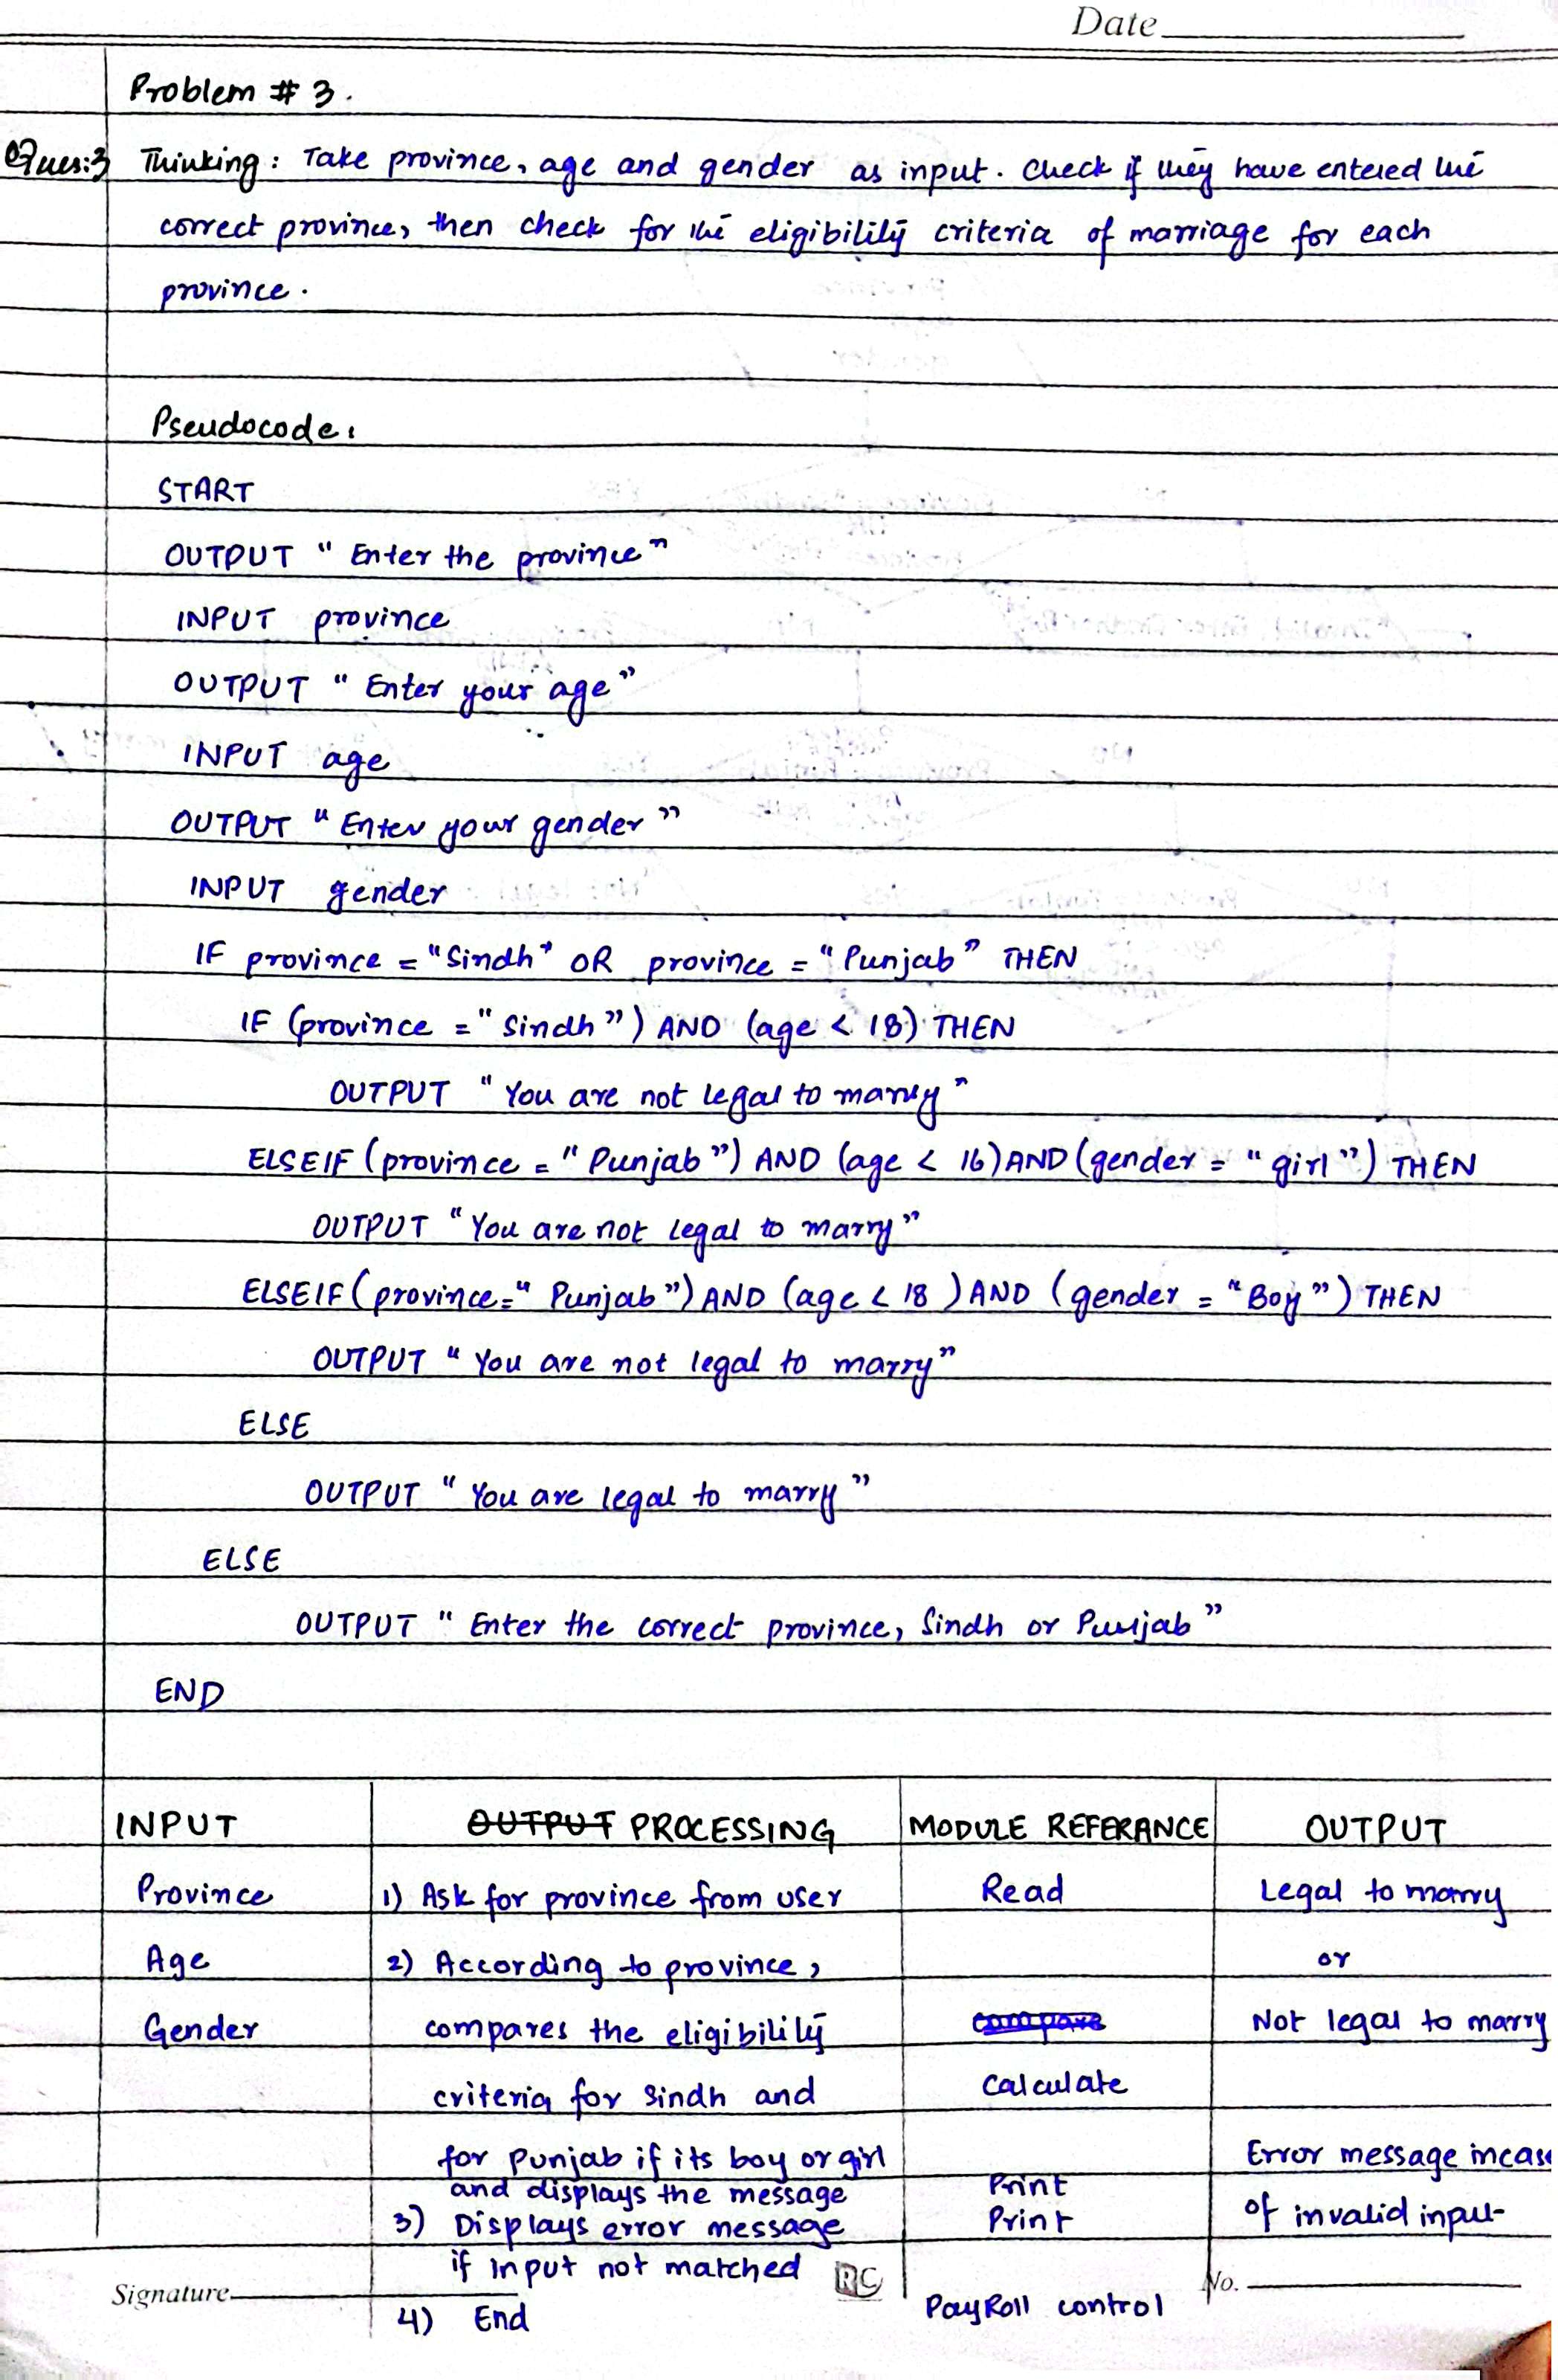 Date
Problem # 3.
Ques:3 Thinking: Take province, age and gender as input. Check if they have entered the
correct province, then check for the eligibility criteria of marriage for each
province.
Pseudocode:
START
OUTPUT "Enter the province"
INPUT province
OUTPUT "Enter your age"
INPUT age
OUTPUT "Enter your gender"
INPUT gender
IF province = "Sindh" OR province = "Punjab" THEN
IF (province = "Sindh") AND (age < 18) THEN
OUTPUT "You are not legal to marry"
ELSEIF (province = "Punjab") AND (age < 16) AND (gender = "girl") THEN
OUTPUT "You are not legal to marry"
ELSEIF (province = "Punjab") AND (age < 18) AND (gender = "Boy") THEN
OUTPUT "You are not legal to marry"
ELSE
OUTPUT "You are legal to marry"
ELSE
OUTPUT "Enter the correct province, Sindh or Punjab"
END
INPUT OUTPUT PROCESSING MODULE REFERANCE OUTPUT
Province 1) Ask for province from user Read Legal to marry
Age 2) According to province, or
Gender compares the eligibility compare Not legal to marry
criteria for Sindh and Calculate
for Punjab if its boy or girl Error message incase
and displays the message Print
3) Displays error message Print of invalid input
if input not matched RC
Signature No.
4) End PayRoll control